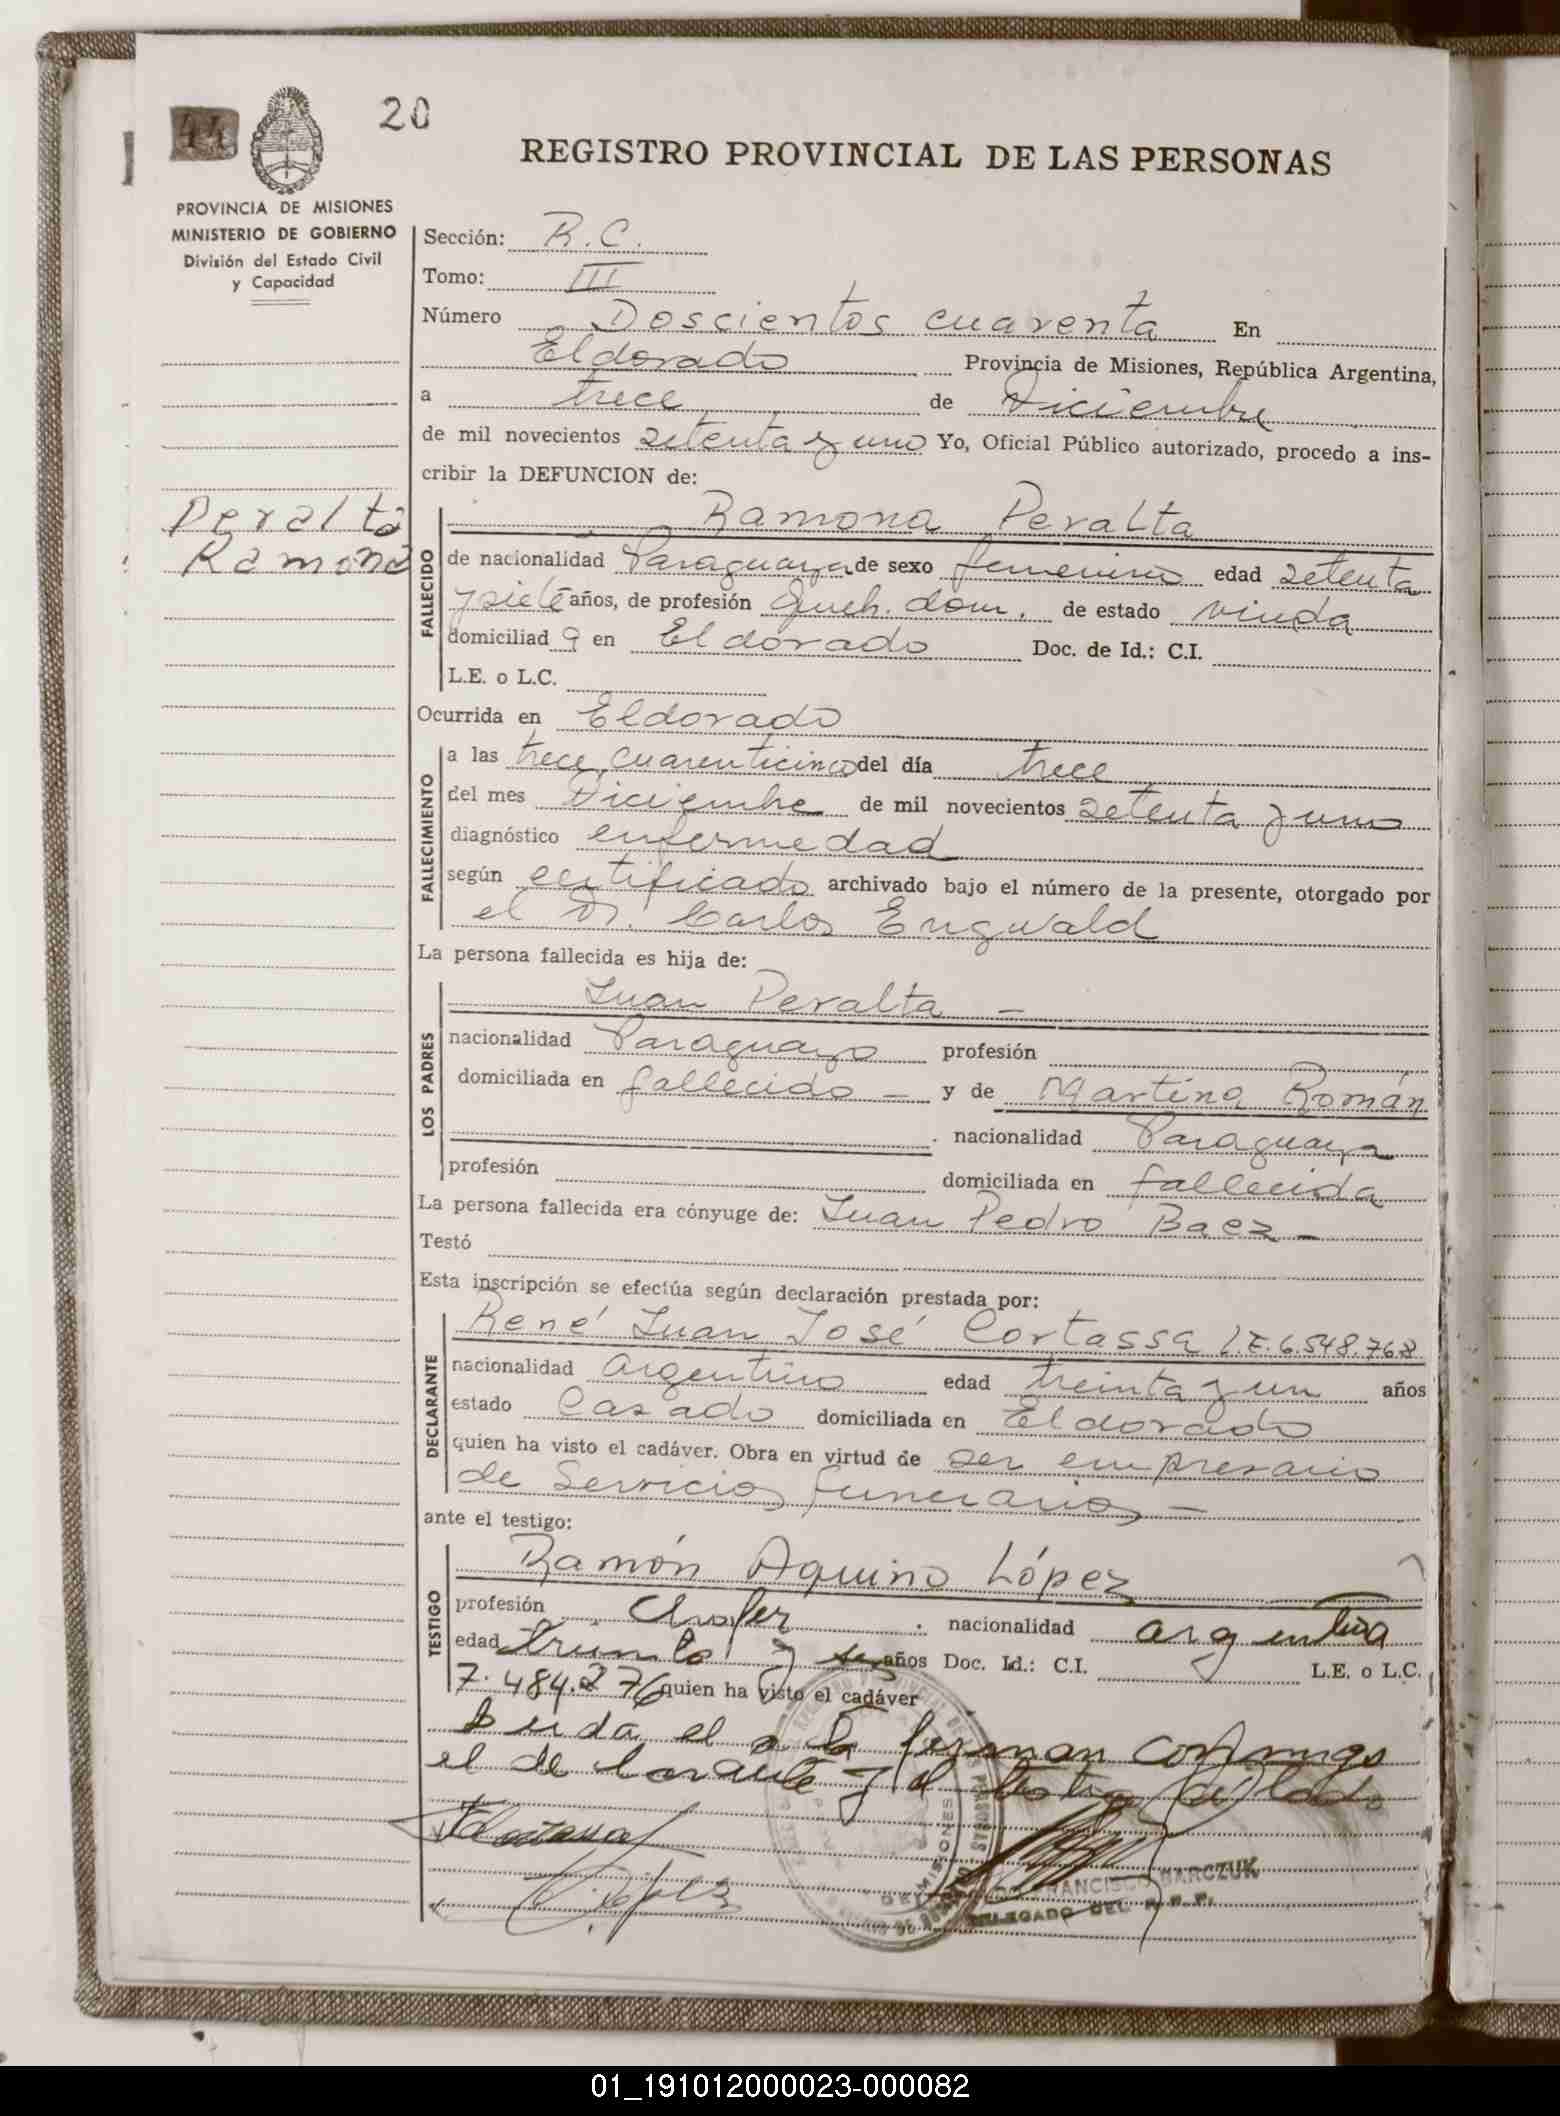 44
20
REGISTRO PROVINCIAL DE LAS PERSONAS
PROVINCIA DE MISIONES
MINISTERIO DE GOBIERNO
División del Estado Civil
y Capacidad
Sección: R. C.
Tomo: III
Número Doscientos cuarenta En
Eldorado Provincia de Misiones, República Argentina,
a trece de Diciembre
de mil novecientos setenta y uno Yo, Oficial Público autorizado, procedo a ins-
cribir la DEFUNCION de:
Peralta
Ramona
FALLECIDO
Ramona Peralta
de nacionalidad Paraguaya de sexo femenino edad setenta
y siete años, de profesión Queh. dom. de estado viuda
domiciliad a en Eldorado Doc. de Id.: C.I.
L.E. o L.C.
Ocurrida en Eldorado
FALLECIMIENTO
a las trece, cuarenticinco del día trece
del mes Diciembre de mil novecientos setenta y uno
diagnóstico enfermedad
según certificado archivado bajo el número de la presente, otorgado por
el Dr. Carlos Engwald
La persona fallecida es hija de:
LOS PADRES
Juan Peralta -
nacionalidad Paraguayo profesión
domiciliada en fallecido - y de Martina Román
nacionalidad Paraguaya
profesión domiciliada en fallecida
La persona fallecida era cónyuge de: Juan Pedro Baez -
Testó
Esta inscripción se efectúa según declaración prestada por:
DECLARANTE
René Juan José Cortassa L.E. 6.548.768
nacionalidad argentino edad treinta y un años
estado Casado domiciliada en Eldorado
quien ha visto el cadáver. Obra en virtud de ser empresario
de Servicios funerarios -
ante el testigo:
TESTIGO
Ramón Aquino López
profesión Chofer . nacionalidad argentina
edad treinta y seis años Doc. Id.: C.I. L.E. o L.C.
7.484.276 quien ha visto el cadáver
Leida el acta firman conmigo
el declarante y el testigo citado
FRANCISCO BARCZUK
DELEGADO DEL R. P. P.
01_191012000023-000082